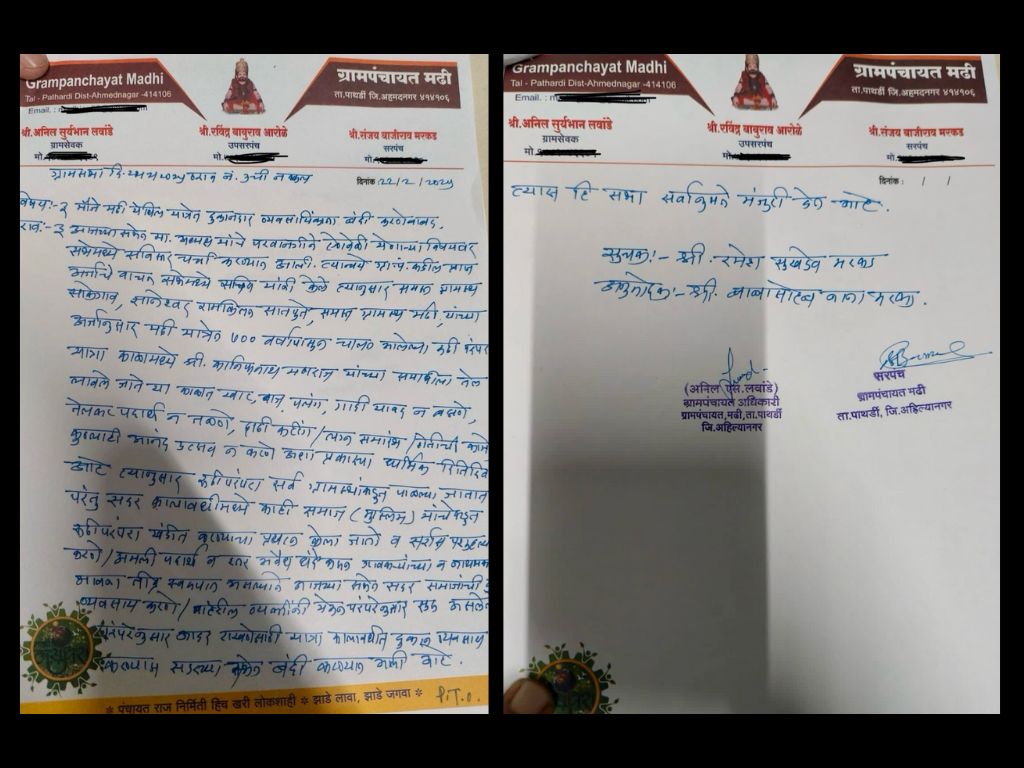 Grampanchayat Madhi
Tal - Pathardi Dist-Ahmednagar -414106
Email. :
ग्रामपंचायत मढी
ता.पाथर्डी जि.अहमदनगर ४१४१०६
श्री.अनिल सुर्यभान लवांडे
ग्रामसेवक
मो.
श्री.रविंद्र बाबुराव आरोळे
उपसरपंच
मो.
श्री.संजय बाजीराव मरकड
सरपंच
मो.
ग्रामसभा दि. ठराव नं. ३ ची नक्कल
दिनांक :22/2/2025
विषय:- ३ मौजे मढी येथिल यात्रेत दुकानदार व्यवसायिकांना बंदी करणेबाबत.
ठराव:- ३ आजच्या सभेत मा. अध्यक्ष यांचे परवानगीने ऐनवेळी येणाऱ्या विषयावर
सभेमध्ये सविस्तर चर्चा करण्यात आली. त्यान्वये ग्रापं. कडील प्राप्त
अर्जाचे वाचन सभेमध्ये सचिव यांनी केले त्यानुसार समस्त ग्रामस्थ
साकेगाव, सानेश्वर रामकिसन सातपुते, समस्त ग्रामस्थ मढी, यांच्या
अर्जानुसार मढी यात्रेत ७०० वर्षापासुन चालत आलेल्या रूढी परंपरा
यात्रा काळामध्ये श्री. कानिफनाथ महाराज यांच्या समाधीला तेल
लावले जाते या काळात खाट, बाज, पलंग, गादी यावर न बसणे,
तेलकट पदार्थ न तळणे, दाढी कटींग/लग्न समारंभ/शेतीची कामे
कुठल्याही आनंद उत्सव न करणे अशा प्रकारच्या धार्मिक रितिरिवाज
आहे त्यानुसार रूढीपरंपरा सर्व ग्रामस्थांकडुन पाळल्या जातात
परंतु सदर कालावधीमध्ये काही समाज (मुस्लिम) यांचेकडुन
रूढीपरंपरा खंडीत करण्याचा प्रयत्न केला जातो व सर्रास
करणे/अमली पदार्थ व इतर अवैध धंदे करून भाविकांच्या व ग्रामस्थ
भावना तीव्र स्वरूपात असल्याने आजच्या सभेत सदर समाजाची
व्यवसाय करणे/बाहेरील व्यक्तींनी येऊन परंपरेनुसार सुरू असलेल्या
परंपरेनुसार आदर राखणेसाठी यात्रा कालावधीत दुकान व्यवसाय
करण्यास सदरच्या सभेत बंदी करण्यात आली आहे.
P.T.O.
❉ पंचायत राज निर्मिती हिच खरी लोकशाही ❉ झाडे लावा, झाडे जगवा ❉
Grampanchayat Madhi
Tal - Pathardi Dist-Ahmednagar -414106
Email. :
ग्रामपंचायत मढी
ता.पाथर्डी जि.अहमदनगर ४१४१०६
श्री.अनिल सुर्यभान लवांडे
ग्रामसेवक
मो.
श्री.रविंद्र बाबुराव आरोळे
उपसरपंच
मो.
श्री.संजय बाजीराव मरकड
सरपंच
मो.
दिनांक : / /
त्यास हि सभा सर्वानुमते मंजुरी देत आहे.
सुचक:- श्री. रमेश सुखदेव मरकड
अनुमोदक:- श्री. बाबासाहेब नाना मरकड.
(अनिल एस.लवांडे)
ग्रामपंचायत अधिकारी
ग्रामपंचायत,मढी,ता.पाथर्डी
जि.अहिल्यानगर
सरपंच
ग्रामपंचायत मढी
ता.पाथर्डी, जि.अहिल्यानगर